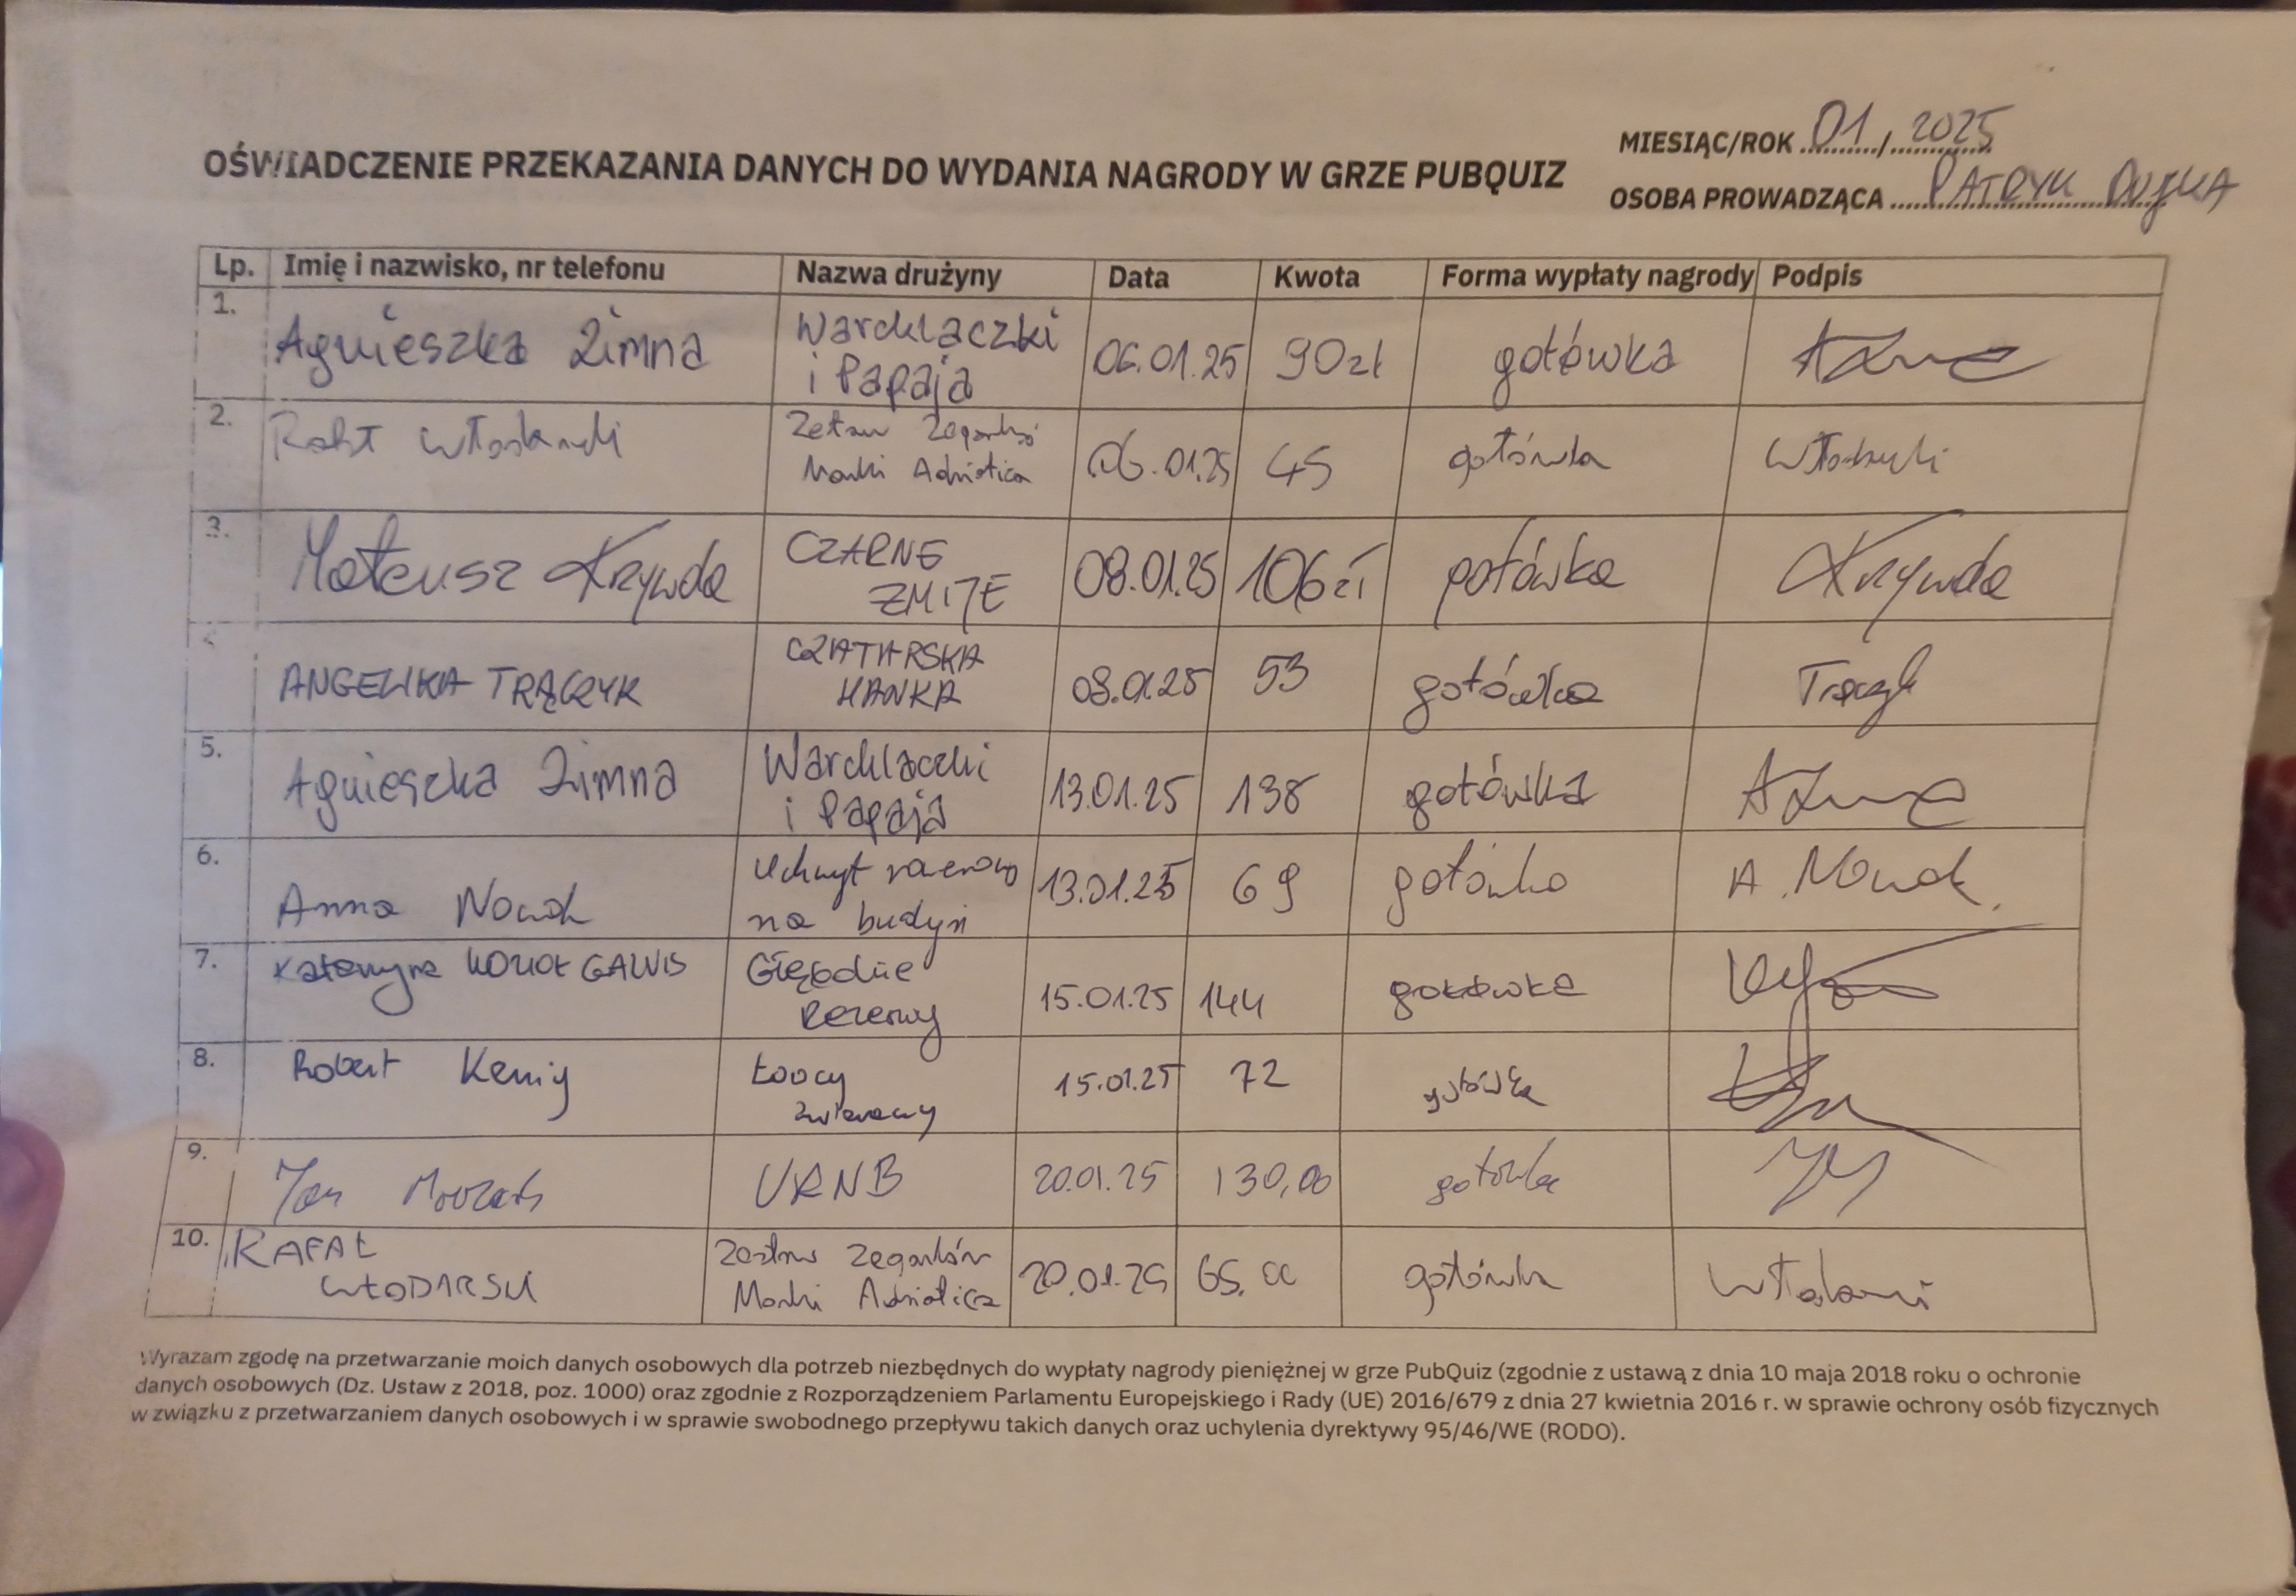 MIESIĄC/ROK 01 / 2025
OŚWIADCZENIE PRZEKAZANIA DANYCH DO WYDANIA NAGRODY W GRZE PUBQUIZ
OSOBA PROWADZĄCA PATRYK DUJKA
Lp. Imię i nazwisko, nr telefonu Nazwa drużyny Data Kwota Forma wypłaty nagrody Podpis
1. Agnieszka Zimna Warchlaczki i Papaja 06.01.25 90zł gotówka
2. Zestaw Zegarków Marki Adriatica 06.01.25 45 gotówka
3. Mateusz Krzywda CZARNE ŻMIJE 08.01.25 106zł gotówka Krzywda
ANGELIKA TRĄCZYK CZATARSKA HANKA 08.01.25 53 gotówka Trączyk
5. Agnieszka Zimna Warchlaczki i Papaja 13.01.25 138 gotówka
6. Anna Nowak Uchwyt rowerowy na budyń 13.01.25 69 gotówka A. Nowak
7. Katarzyna Głębokie Rezerwy 15.01.25 144 gotówka
8. Robert Kenig Łowcy zwierzęcy 15.01.25 72 gotówka
9. Jan URNB 20.01.25 130,00 gotówka
10. RAFAŁ WŁODARSKI Zestaw Zegarków Marki Adriatica 20.01.25 65.00 gotówka
Wyrazam zgodę na przetwarzanie moich danych osobowych dla potrzeb niezbędnych do wypłaty nagrody pieniężnej w grze PubQuiz (zgodnie z ustawą z dnia 10 maja 2018 roku o ochronie
danych osobowych (Dz. Ustaw z 2018, poz. 1000) oraz zgodnie z Rozporządzeniem Parlamentu Europejskiego i Rady (UE) 2016/679 z dnia 27 kwietnia 2016 r. w sprawie ochrony osób fizycznych
w związku z przetwarzaniem danych osobowych i w sprawie swobodnego przepływu takich danych oraz uchylenia dyrektywy 95/46/WE (RODO).